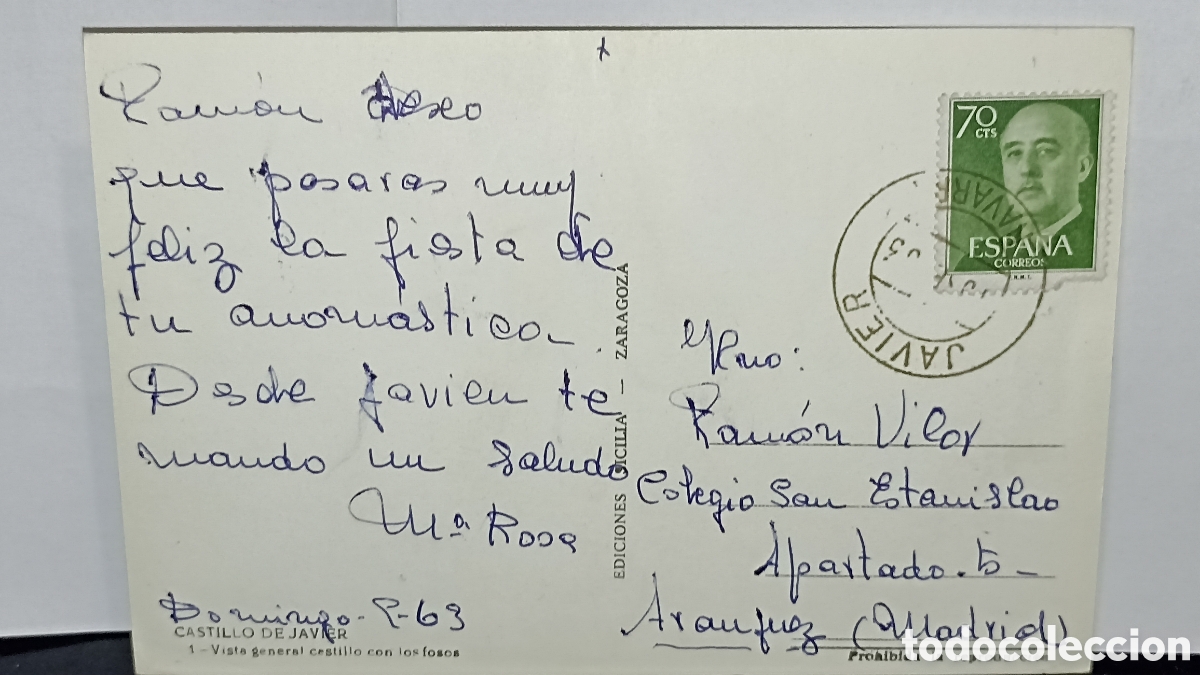 +
Ramón Deseo
que pasaras muy
feliz la fiesta de
tu anomástica.
Desde Javier te
mando un saludo
Mª Rosa
Domingo-
-63
CASTILLO DE JAVIER
1 - Vista general castillo con los fosos
EDICIONES SICILIA - ZARAGOZA
70
CTS
ESPAÑA
CORREOS
JAVIER
Hno:
Ramón Vilar
Colegio San Estanislao
Apartado. 5-
Aranjuez (Madrid)
todocoleccion